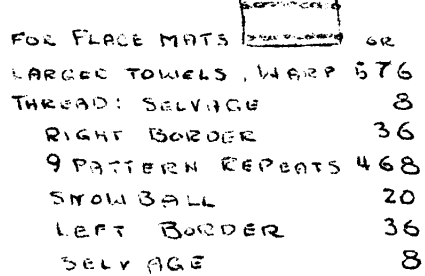 FOR PLACE MATS OR
LARGER TOWELS, WARP 576
THREAD: SELVAGE 8
RIGHT BORDER 36
9 PATTERN REPEATS 468
SNOWBALL 20
LEFT BORDER 36
SELVAGE 8